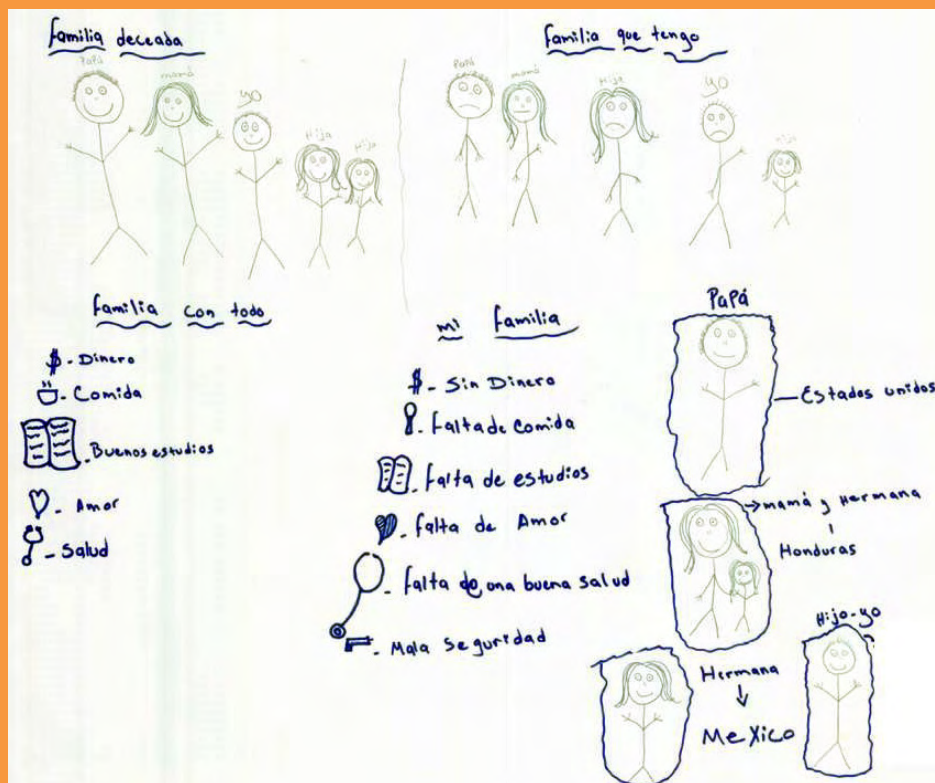 Familia deceada
Papá
mamá
yo
Hija
Hija
Familia que tengo
Papá
mamá
Hija
yo
Hija
familia con todo
$ - Dinero
- Comida
- Buenos estudios
- Amor
- Salud
mi familia
$ - Sin Dinero
- Falta de Comida
- falta de estudios
- falta de Amor
- falta de una buena salud
- Mala Seguridad
Papá
Estados unidos
mamá y Hermana
Honduras
Hermana
Mexico
Hijo-yo